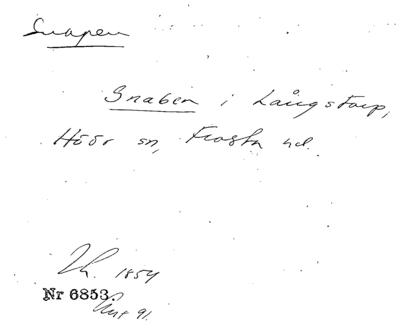 Snapen
Snaben i Långstorp,
Höör sn, Frosta hd.
1854
Nr 6853.
91.